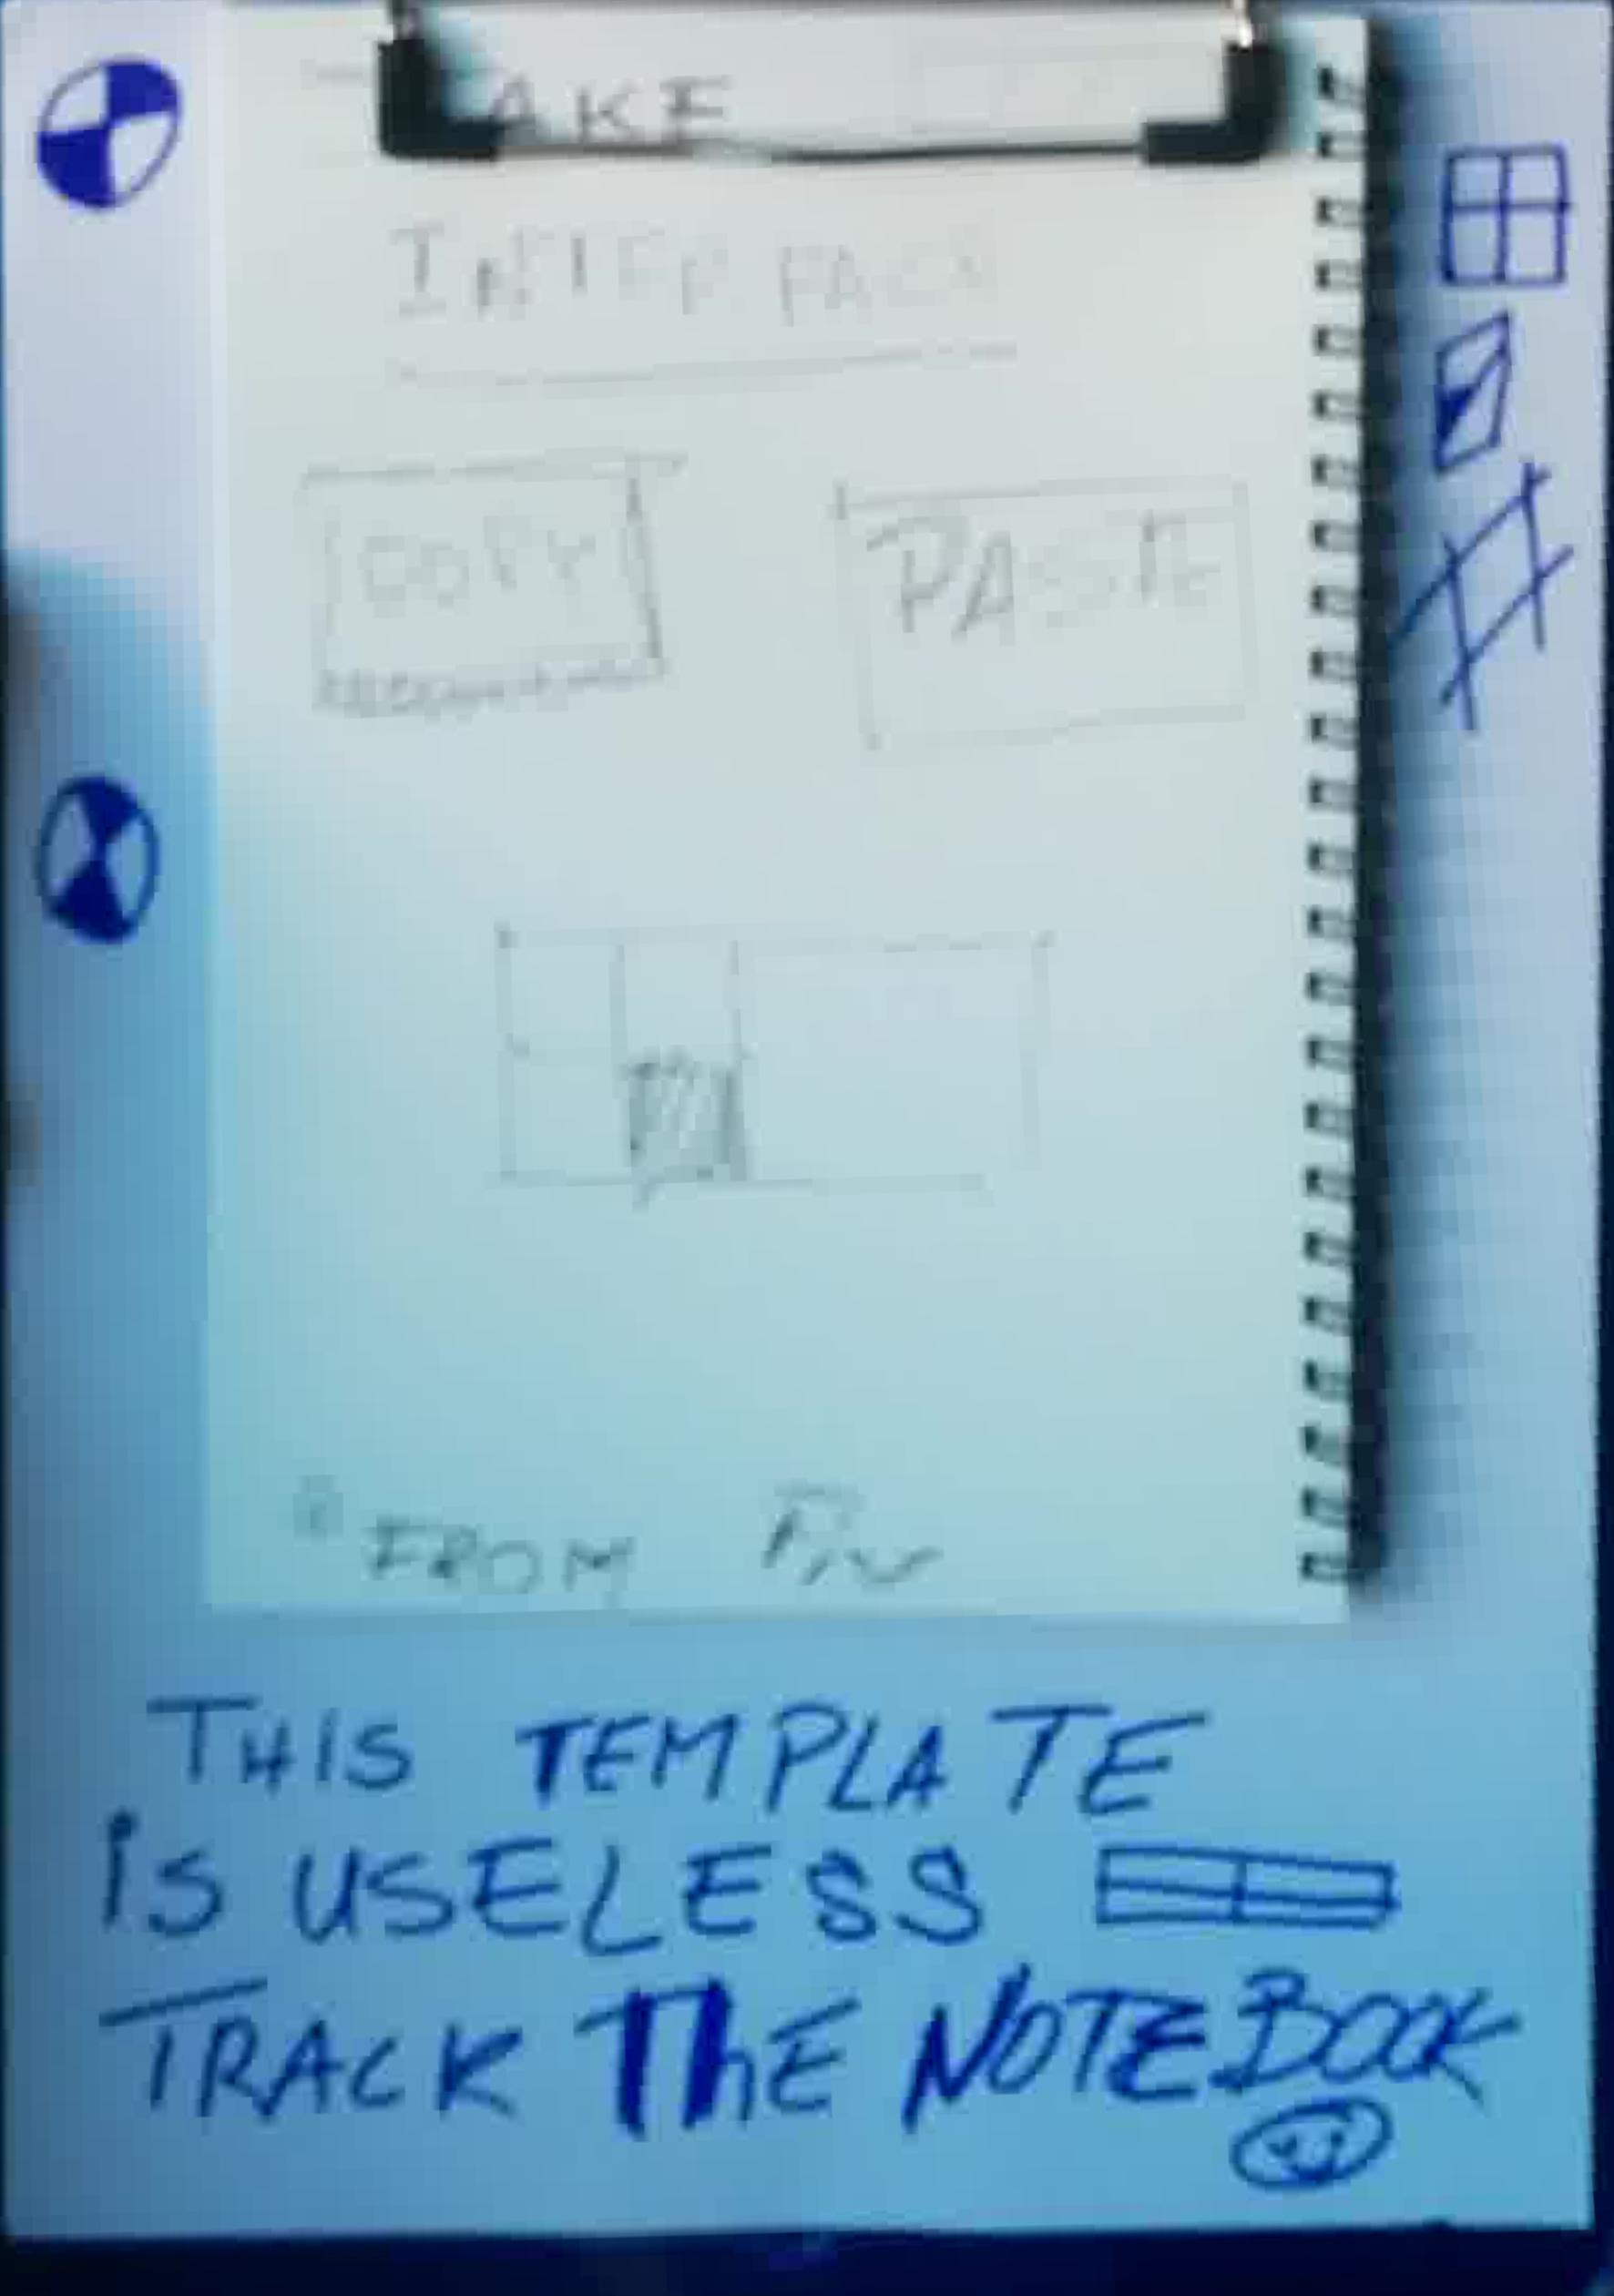 AKE
INTERFACE
COPY
PASTE
FROM
THIS TEMPLATE
IS USELESS
TRACK THE NOTEBOOK